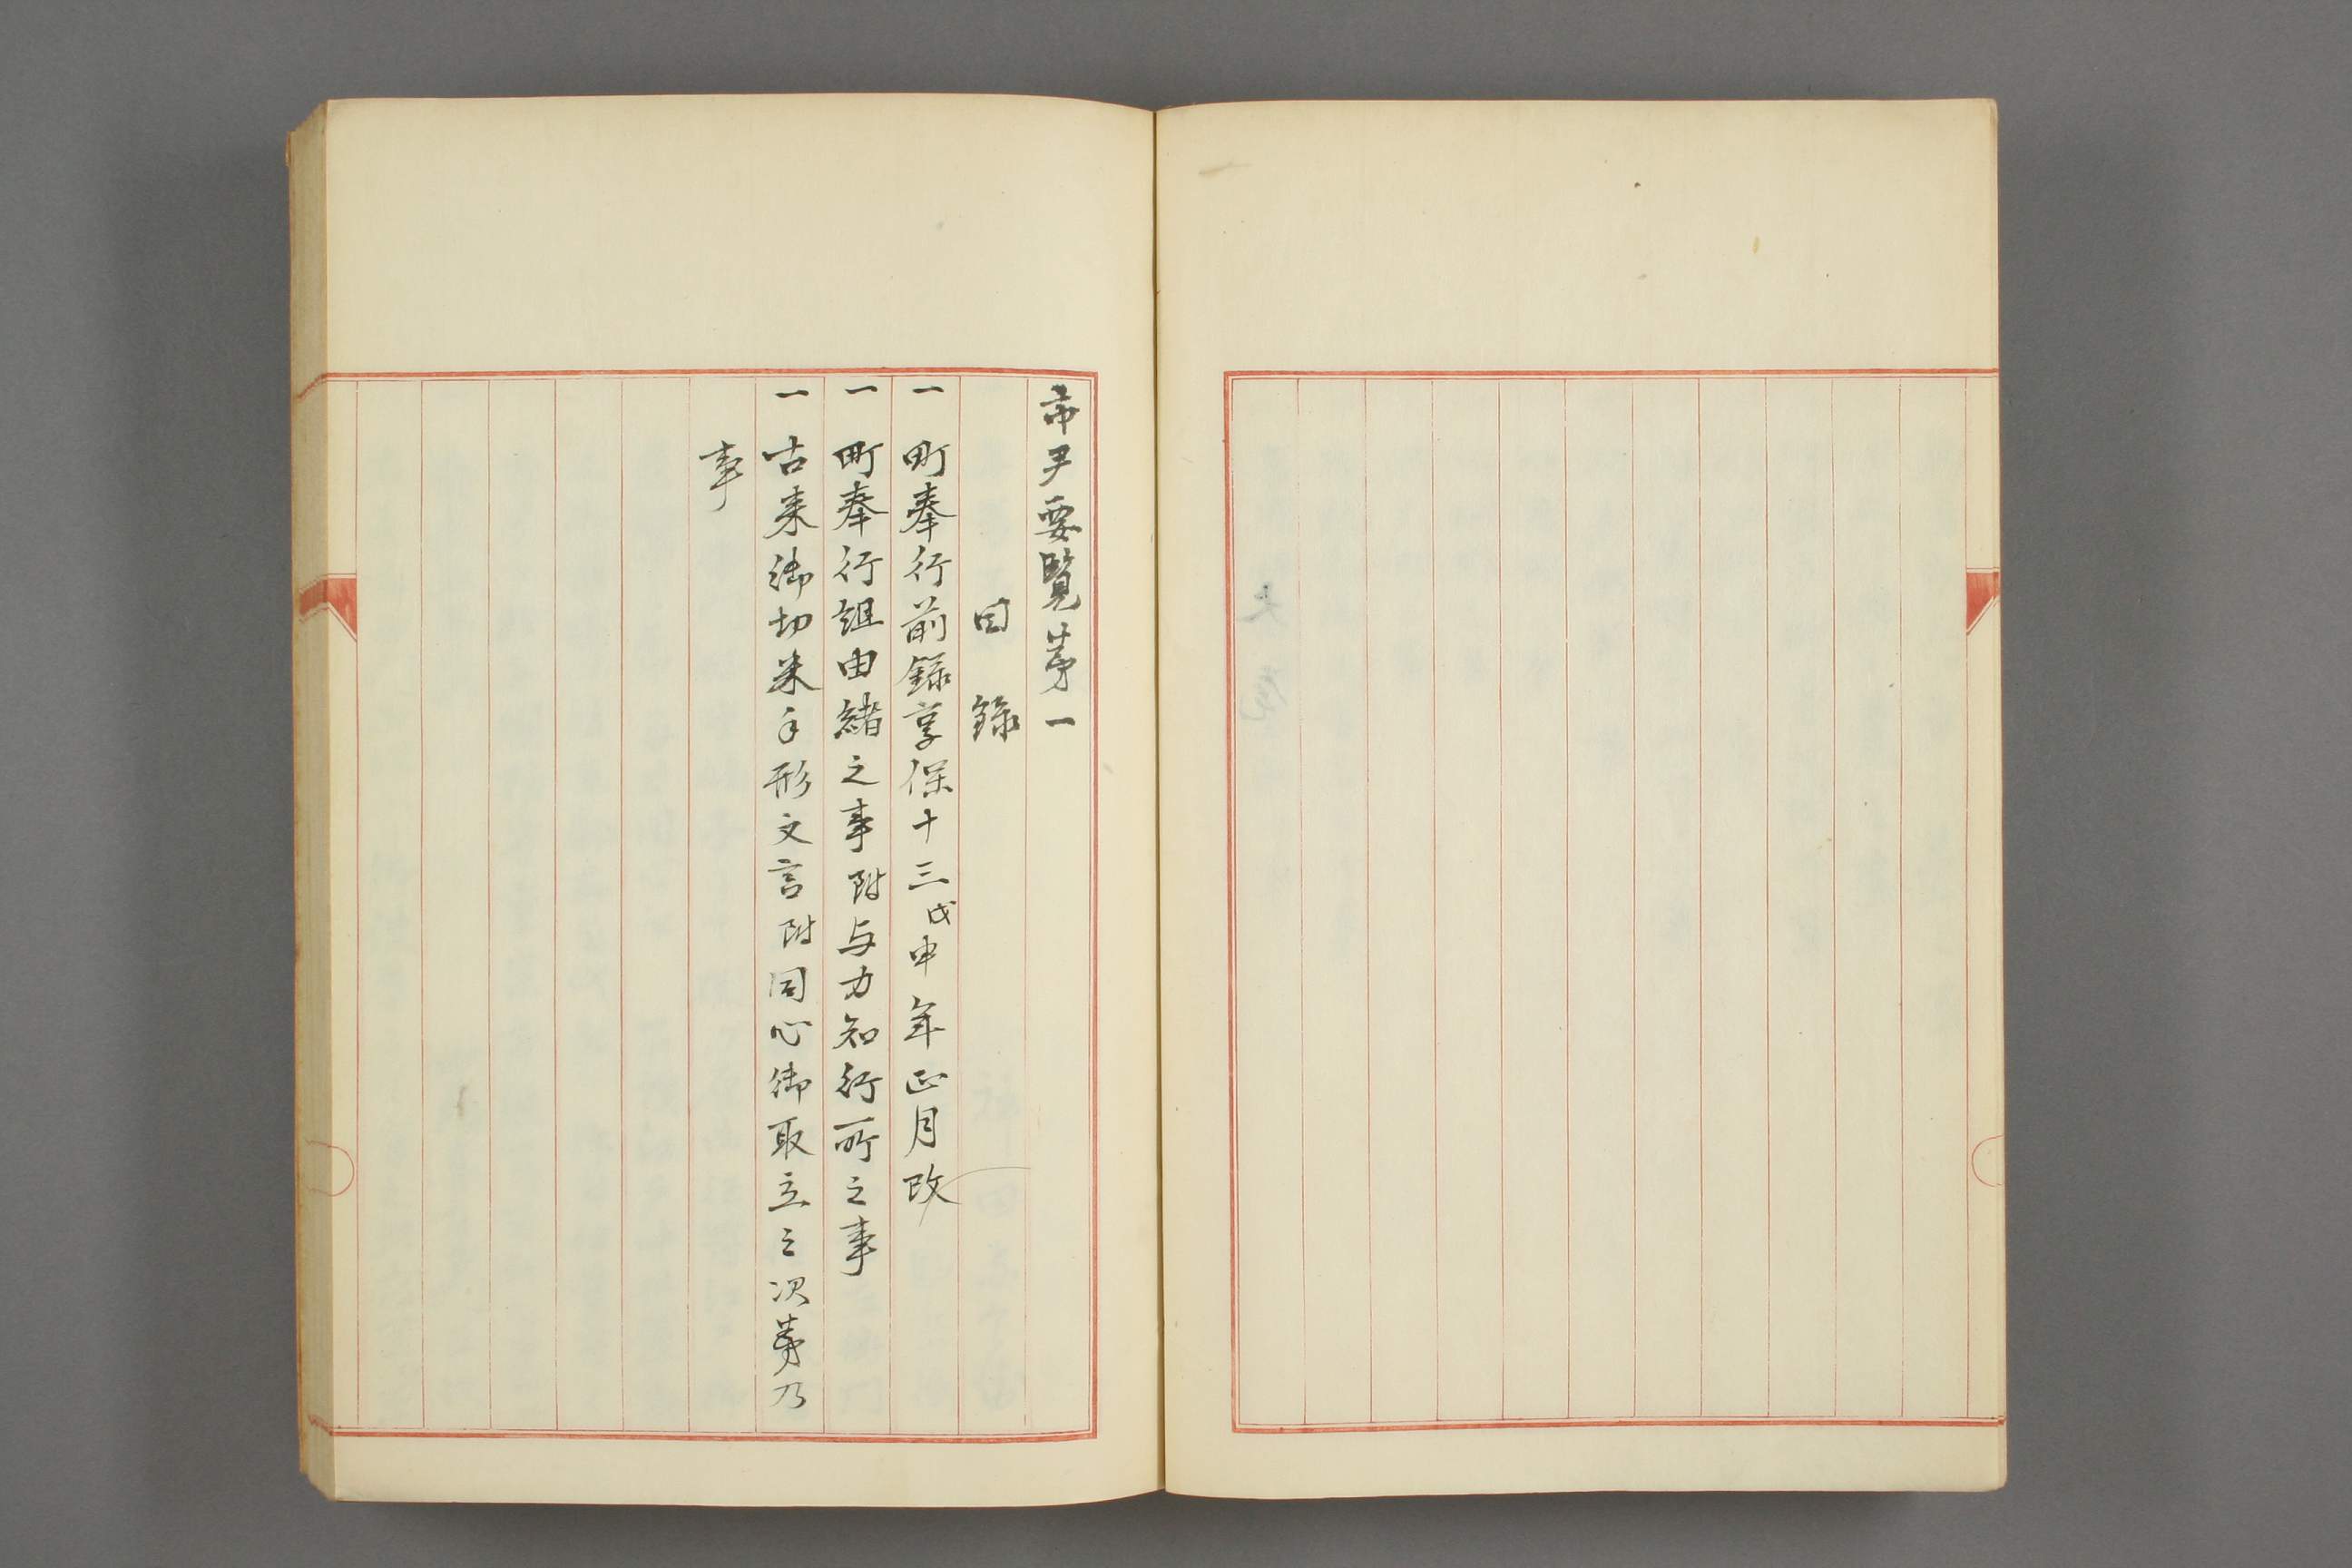 市尹要覧第一
目録
一 町奉行前録享保十三戊申年正月改
一 町奉行組由緒之事附与力知行所之事
一 古来御切米手形文言附同心御取立之次第乃
事